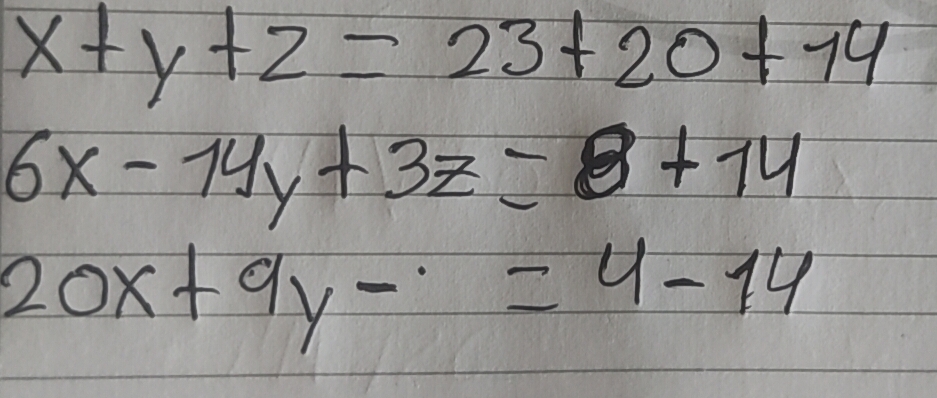 x+y+z = 23+20+14
6x - 14y + 3z = 8 + 14
20x + 9y - · = 4 - 14